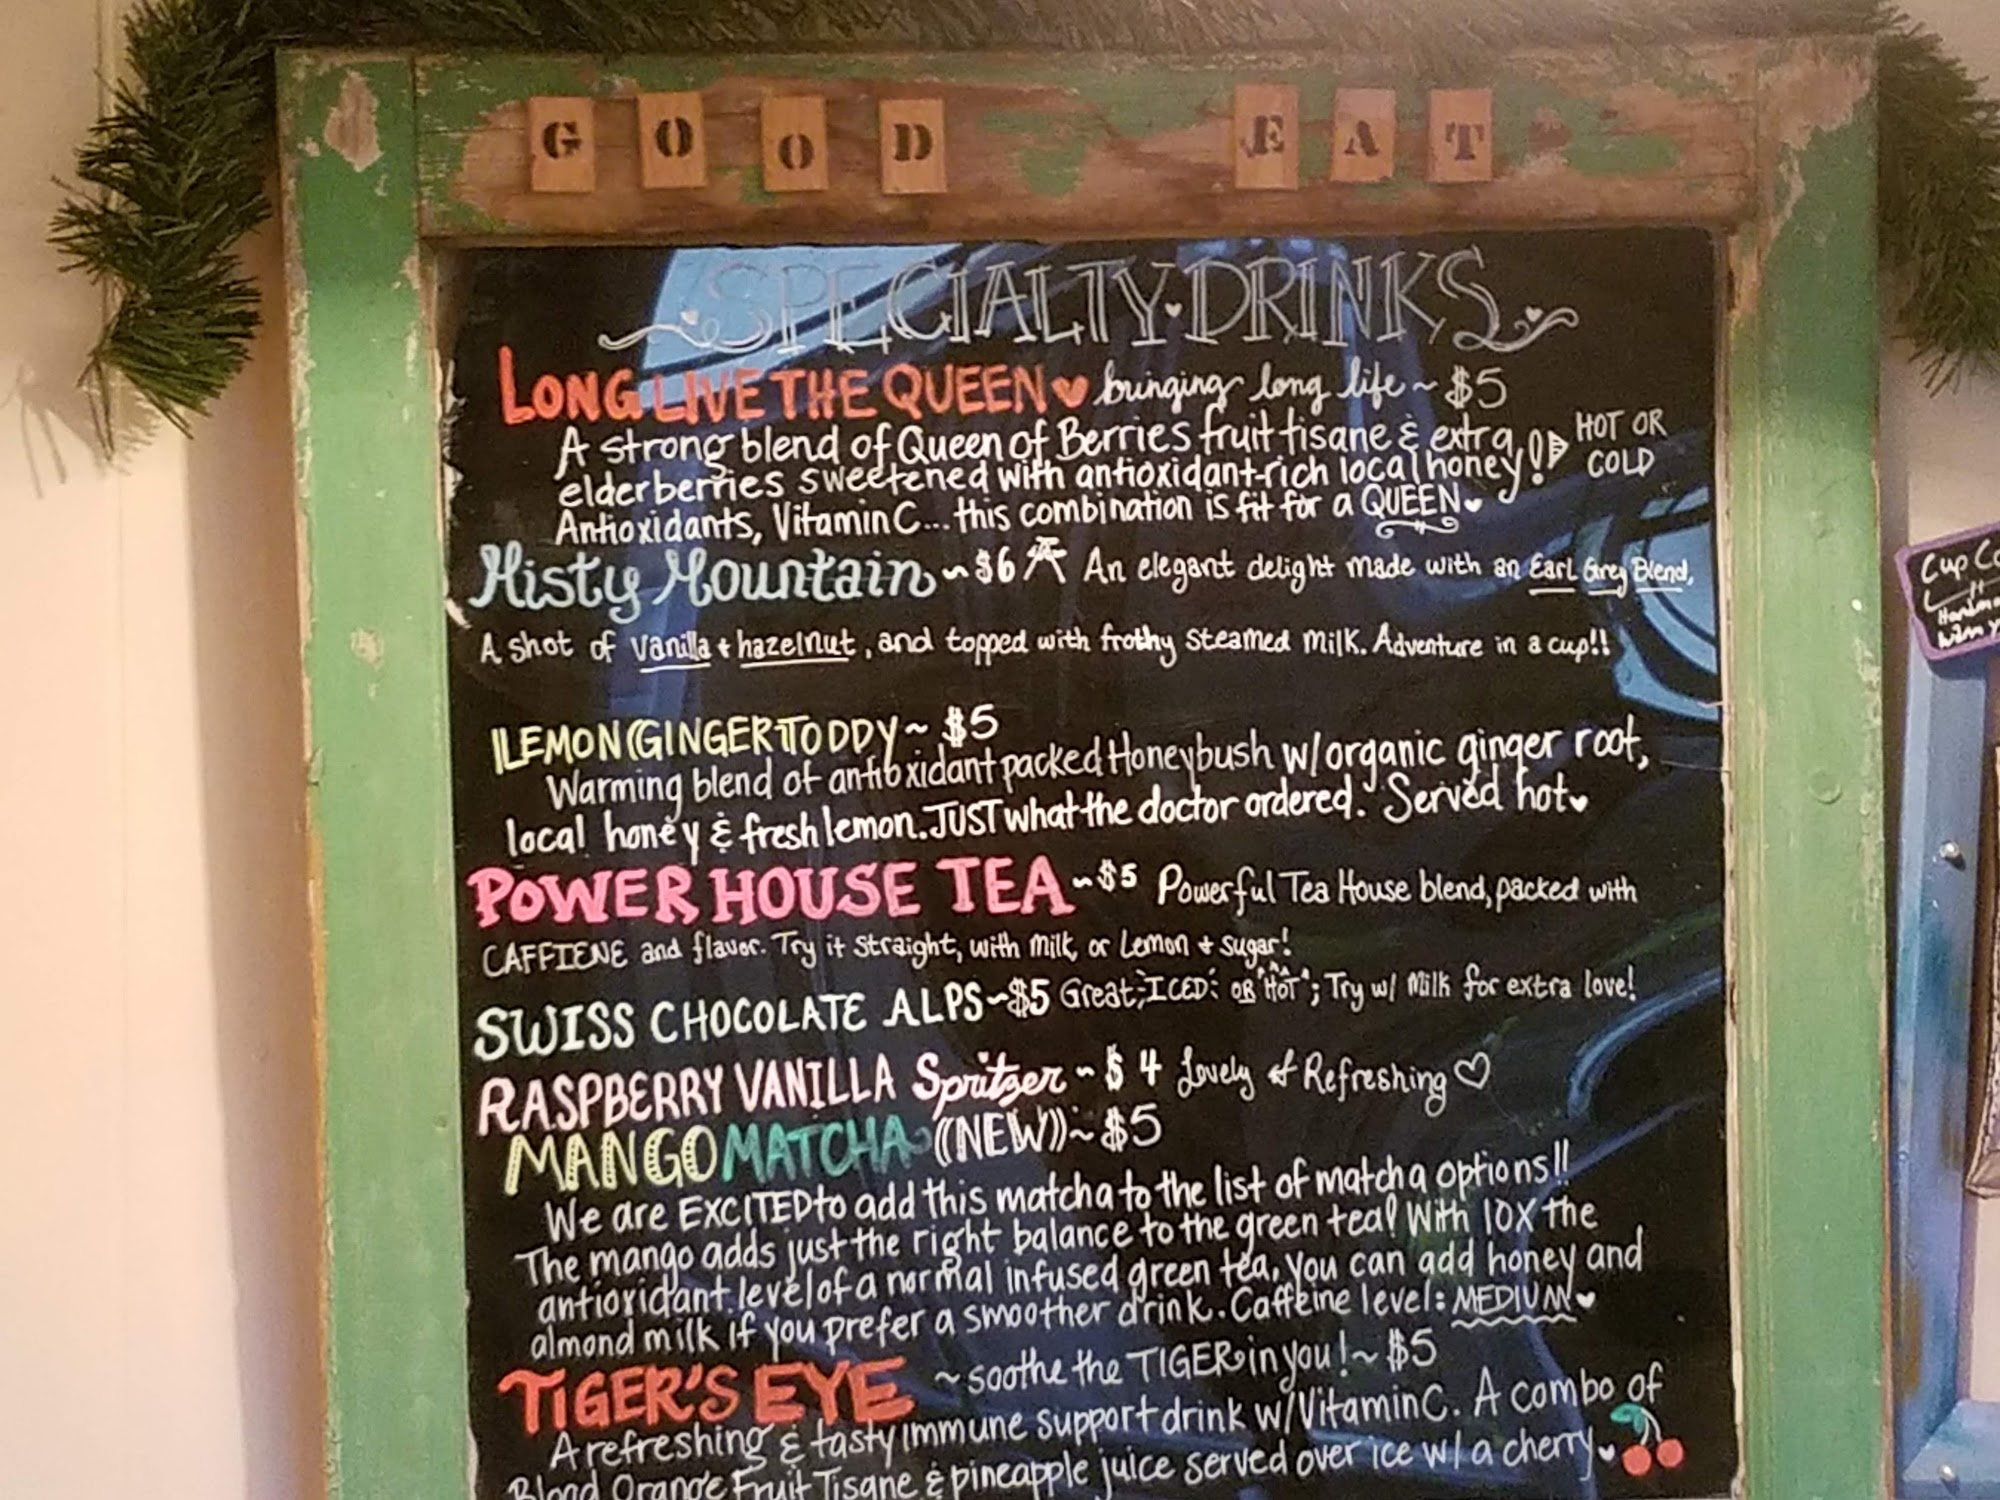 GOOD EAT
SPECIALTY DRINKS
LONG LIVE THE QUEEN bringing long life ~ $5
A strong blend of Queen of Berries fruit tisane & extra
elderberries sweetened with antioxidant-rich local honey!
HOT OR
COLD
Antioxidants, Vitamin C... this combination is fit for a QUEEN
Misty Mountain ~ $6 An elegant delight made with an Earl Grey Blend,
A shot of vanilla + hazelnut, and topped with frothy steamed milk. Adventure in a cup!!
LEMON GINGER TODDY ~ $5
Warming blend of antioxidant packed Honeybush w/organic ginger root,
local honey & fresh lemon. JUST what the doctor ordered. Served hot
POWER HOUSE TEA ~ $5 Powerful Tea House blend, packed with
CAFFIENE and flavor. Try it straight, with milk, or Lemon + sugar!
SWISS CHOCOLATE ALPS ~ $5 Great ICED OR HOT; Try w/ Milk for extra love!
RASPBERRY VANILLA Spritzer ~ $4 Lovely & Refreshing
MANGO MATCHA ((NEW)) ~ $5
We are EXCITED to add this matcha to the list of matcha options!!
The mango adds just the right balance to the green tea! With 10X the
antioxidant level of a normal infused green tea, you can add honey and
almond milk if you prefer a smoother drink. Caffeine level: MEDIUM
TIGER'S EYE ~ soothe the TIGER in you! ~ $5
A refreshing & tasty immune support drink w/Vitamin C. A combo of
Blood Orange Fruit Tisane & pineapple juice served over ice w/ a cherry
Cup